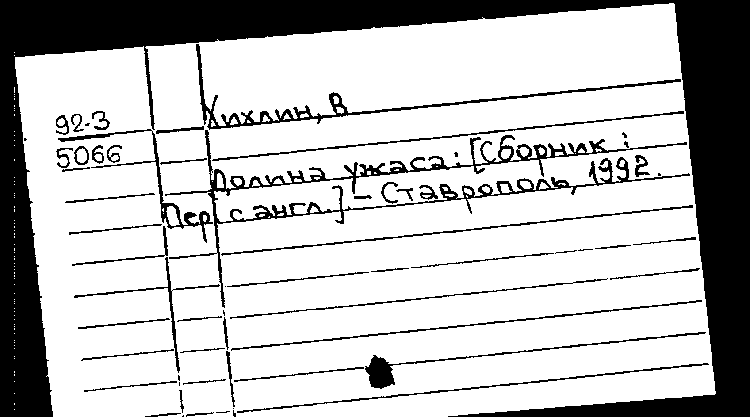 92-3
5066
Хихлин, В
Долина ужаса: [Сборник:
Пер. с англ.] – Ставрополь, 1992.